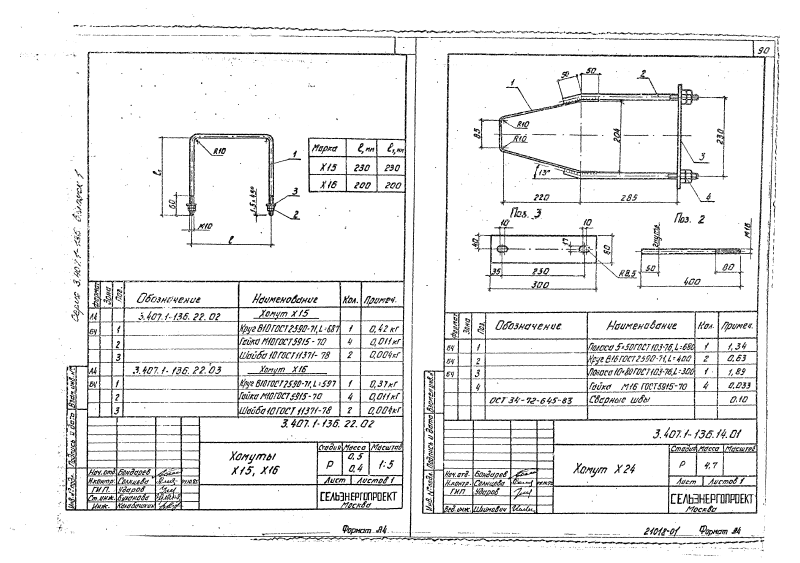 90
Серия 3.407.1-136 Выпуск 1
R10
1
3
2
ℓ₁
60
1,5×45°
М10
ℓ
Марка ℓ, мм ℓ₁, мм
Х15 230 230
Х16 200 200
Формат Зона Поз. Обозначение Наименование Кол. Примеч.
А4 3.407.1-136.22.02 Хомут Х15
БЧ 1 Круг В10 ГОСТ 2590-71, L=687 1 0,42 кг
2 Гайка М10 ГОСТ 5915-70 4 0,011 кг
3 Шайба 10 ГОСТ 11371-78 2 0,004 кг
А4 3.407.1-136.22.03 Хомут Х16
БЧ 1 Круг В10 ГОСТ 2590-71, L=597 1 0,37 кг
2 Гайка М10 ГОСТ 5915-70 4 0,011 кг
3 Шайба 10 ГОСТ 11371-78 2 0,004 кг
3.407.1-136.22.02
Хомуты
Х15, Х16
Стадия Масса Масштаб
Р 0,5 0,4 1:5
Лист Листов 1
СЕЛЬЭНЕРГОПРОЕКТ
Москва
Нач. отд. Бондарев
Н.контр. Солнцева
ГИП. Ударов
Ст. инж.
Инж.
Инв.№ подл. Подпись и дата Взам.инв.№
Формат А4
1
50
50
2
R10
R10
85
204
230
13°
3
4
220
285
Поз. 3
10
10
40
17
80
35
230
300
R8,5
Поз. 2
М16
50
80
400
Формат Зона Поз. Обозначение Наименование Кол. Примеч.
БЧ 1 Полоса 5×50 ГОСТ 103-76, L=680 1 1,34
БЧ 2 Круг В16 ГОСТ 2590-71, L=400 2 0,63
БЧ 3 Полоса 10×80 ГОСТ 103-76, L=300 1 1,89
4 Гайка М16 ГОСТ 5915-70 4 0,033
ОСТ 34-72-645-83 Сварные швы 0.10
3.407.1-136.14.01
Хомут Х24
Стадия Масса Масштаб
Р 4,7
Лист Листов 1
СЕЛЬЭНЕРГОПРОЕКТ
Москва
Нач.отд. Бондарев
Н.контр. Солнцева
ГИП Ударов
Вед. инж. Шинович
Инв.№ подл. Подпись и дата Взам.инв.№
21018-01 Формат А4